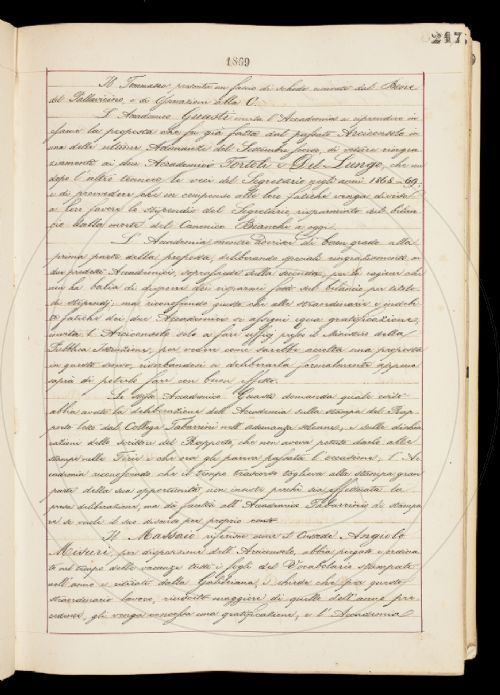 247
1869
Il Tommaseo presenta un fascio di schede ricavate dal Berni
del Pallavicino, e di Giunte alla C.
L'Accademico Guasti invita l'Accademia a riprendere in
esame la proposta che fu già fatta dal passato Arciconsolo in
una delle ultime Adunanze del Dicembre scorso, di
ai due Accademici Tortoli e Del Lungo, che un
dopo l'altro tennero le veci del Segretario negli anni 1868-69;
e di provvedere che in compenso alle loro fatiche venga diviso
a loro favore lo stipendio del Segretario risparmiato sul bilan-
cio dalla morte del Canonico Bianchi a oggi.
L'Accademia mostra di buon grado alla
prima parte della proposta, deliberando speciali ringraziamenti ai
due predetti Accademici, soprassiede dalla seconda, per la ragione che
non ha balìa di disporre dei risparmi fatti sul bilancio per titolo
di stipendj; ma riconoscendo giusto che alle straordinarie
fatiche dei due Accademici si assegni equa gratificazione,
invita l'Arciconsolo solo a fare uffizj presso il Ministro della
Pubblica Istruzione, per vedere come sarebbe accolta una proposta
in questo senso, riserbandosi a deliberarla formalmente appena
sappia di poterlo fare con buon effetto.
Lo stesso Accademico Guasti domanda quale esito
abbia avuto la deliberazione dell'Accademia sulla stampa del Rap-
porto letto dal Collega Tabarrini nell'adunanza solenne, e sulla dichia-
razione dello scrittore del Rapporto, che non aveva potuto darlo alle
stampe nelle Ferie e che era già passata l'occasione, l'Ac-
cademia riconoscendo che il tempo trascorso toglieva alla stampa gran
parte della sua opportunità, non insiste perchè sia effettuata la
presa deliberazione, ma dà facoltà all'Accademico Tabarrini di stampa-
re se vuole il suo discorso per proprio conto.
Il Massaio riferisce come il Custode Angiolo
Misuri, per disposizione dell'Arciconsolo, abbia piegato e ordina-
to nel tempo delle vacanze tutti i fogli del Vocabolario stampato
nell'anno e ritirato dalla Galileiana, e chiede che per questo
straordinario lavoro, riuscito maggiore di quello dell'anno pre-
cedente, gli venga concessa una gratificazione, e l'Accademia